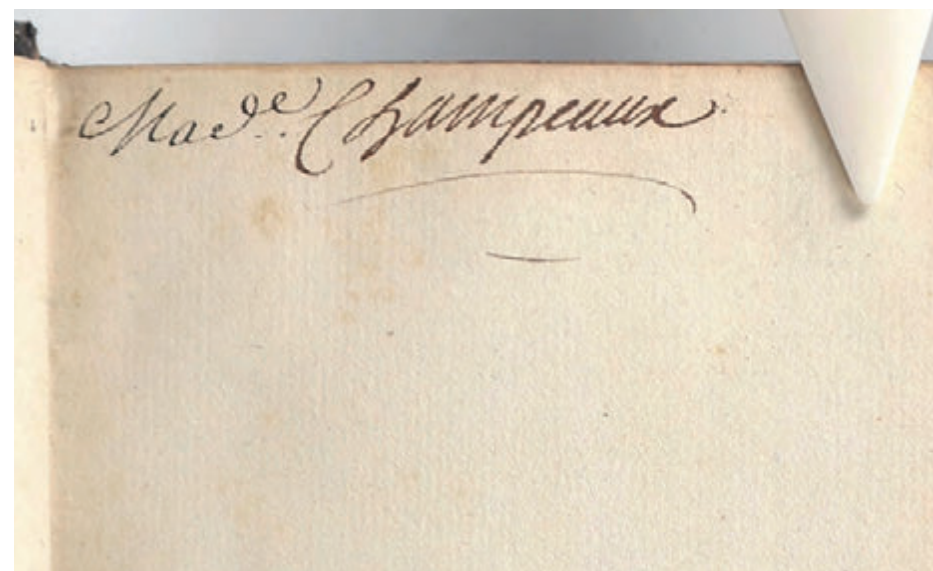 Made. Champeaux